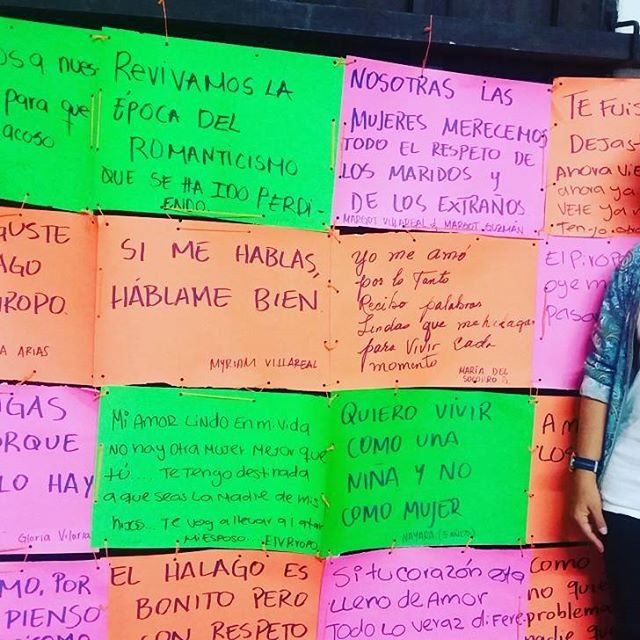 OS A NUES
para que
acoso
REVIVAMOS LA
ÉPOCA DEL
ROMANTICISMO
QUE SE HA IDO PERDI-
ENDO.
NOSOTRAS LAS
MUJERES MERECEMOS
TODO EL RESPETO DE
LOS MARIDOS Y
DE LOS EXTRAÑOS
MARGOT VILLAREAL Y MARGOT GUZMÁN
TE FUIS
DEJAS
AHORA VIE
ahora ya
VETE ya
Tengo otro
GUSTE
AGO
IROPO.
A ARIAS
SI ME HABLAS,
HÁBLAME BIEN
MYRIAM VILLAREAL
Yo me amó
por lo Tanto
Recibo palabras
Lindas que me hidagan
para vivir cada
momento
MARÍA DEL
SOCORRO
El PIROPO
oye m
Perso
IGAS
ORQUE
LO HAY
Gloria Viloria
Mi AMOR LINDO EN MI VIDA
NO hay OTRA MUJER MEJOR QUE
TÚ... TE TENGO destinada
a que seas LA MADRE DE MIS
HIJOS... TE VOY a llevar al altar
MI ESPOSO. EL VIROPO
QUIERO VIVIR
COMO UNA
NIÑA Y NO
COMO MUJER
NAYARA (5 AÑOS)
A M
LOS
MO, POR
PIENSO
COMO
EL HALAGO ES
BONITO PERO
CON RESPETO
Si tu corazón esta
LLENO DE AMOR
TODO LO VERAZ DIFERE
COMO
NO quie
problema
nadie que